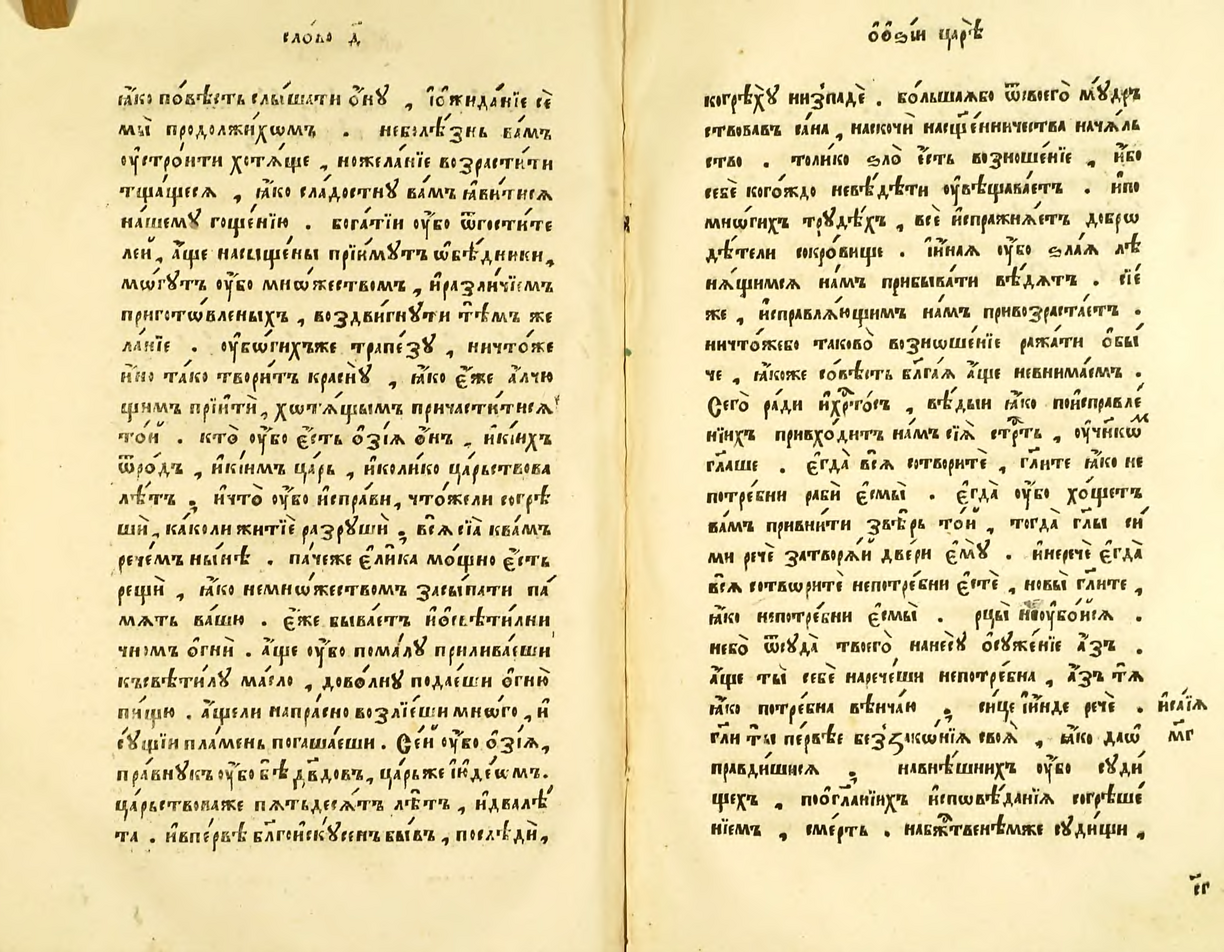 сло́во д҃
ꙗ҆́ко по́вѣсть слы́шати ѻ҆́нꙋ , і҆ѻ҆жида́нїе сѐ
мы̀ продолжи́хѡмъ . неболѣ́знь ва́мъ
ᲂу҆стро́ити хотѧ́ще , ножела́нїе возрасти́ти
тща́щесѧ , ꙗ҆́ко сла́достнꙋ ва́мъ ꙗ҆ви́тисѧ
на́шемꙋ гоще́нїю . бога́тїи ᲂу҆́бо ѿгости́те
ле́й , а҆́ще насы́щены прїи́мꙋтъ ѡ҆бѣ́дники ,
мо́гꙋтъ ᲂу҆́бо мно́жествомъ , и҆разли́чїемъ
пригото́вленыхъ , воздви́гнꙋти тѣ́мъ же
ла́нїе . ᲂу҆бо́гихъже трапе́зꙋ , ничто́же
и҆́но та́ко твори́тъ кра́снꙋ , ꙗ҆́ко є҆́же а҆́лчю
щимъ прїитѝ , хотѧ́щымъ причасти́тисѧ
то́й . кто̀ ᲂу҆́бо є҆́сть ѻ҆зі́ѧ ѻ҆́нъ , и҆кі́ихъ
ѿро́дъ , и҆кі́имъ ца́рь , и҆коли́ко ца́рьствова
лѣ́тъ ; и҆что̀ ᲂу҆́бо и҆спра́ви , что́жели согрѣ
шѝ , ка́коли житїѐ разрꙋшѝ ; всѧ̀ сїѧ̀ ква́мъ
рече́мъ ны́нѣ . па́чеже є҆ли́ка мо́щно є҆́сть
рещѝ , ꙗ҆́ко немно́жествомъ засы́пати па́
мѧть ва́шю . є҆́же быва́етъ и҆ѻ҆свѣти́лни
чномъ ѻ҆гнѝ . а҆́ще ᲂу҆́бо пома́лꙋ прилива́еши
късвѣти́лꙋ ма́сло , дово́лнꙋ подае́ши ѻ҆гню̀
пи́щю . а҆́щели напра́сно возлїе́ши мно́го , и҆
сꙋ́щїи пла́мень погаша́еши . Се́й ᲂу҆́бо ѻ҆зі́ѧ ,
пра́внꙋкъ ᲂу҆́бо бѣ̀ дв҃довъ , ца́рьже і҆ꙋде́ѡмъ .
ца́рьствоваже пѧтьдесѧ́тъ лѣ́тъ , и҆два̀лѣ́
та . и҆впе́рвѣ бл҃гои҆скꙋ́сенъ бы́въ , послѣдѝ ,
ѻ҆ѻ҆ѕі́и царѣ̀
когрѣхꙋ̀ низпадѐ . бо́льшаѧбо ѿсвоего̀ мꙋ́дръ
ствовавъ са́на , наскочѝ насщ҃е́нничества нача́ль
ство . толи́ко ѕло̀ є҆́сть возноше́нїе , и҆́бо
себѐ кого́ждо невѣ́дѣти ᲂу҆вѣщава́етъ . и҆по
мно́гихъ трꙋдѣ́хъ , всѐ и҆спражнѧ́етъ добро
дѣ́тели сокро́вище . и҆и҆на́ѧ ᲂу҆́бо ѕла́ѧ лѣ
нѧ́щимсѧ на́мъ прибыва́ти вѣ́дѧтъ . сїе́
же , и҆справлѧ́ющимъ на́мъ привозраста́етъ .
ничто́жебо таково̀ возноше́нїе ража́ти ѻ҆бы́
че , ꙗ҆́коже со́вѣсть бл҃га́ѧ а҆́ще невнима́емъ .
Сего̀ ра́ди и҆хрⷭ҇то́съ , вѣ́дыи ꙗ҆́ко пои҆справле́
нїихъ привхо́дитъ на́мъ сїѧ̀ стрⷭ҇ть , ᲂу҆чн҃ко́мъ
гл҃аше . є҆гда̀ всѧ̀ сотвори́те , гл҃ите ꙗ҆́ко не
потре́бни рабѝ є҆смы̀ . є҆гда̀ ᲂу҆́бо хо́щетъ
ва́мъ привни́ти звѣ́рь то́й , тогда̀ гл҃ы си́
ми речѐ затворѧ́й две́ри є҆мꙋ̀ . и҆неречѐ є҆гда̀
всѧ̀ сотвори́те непотре́бни є҆стѐ , но́вы̀ гл҃ите ,
ꙗ҆́ко непотре́бни є҆смы̀ . рцы̀ и҆неᲂу҆бо́йсѧ .
небо̀ ѿсꙋда̀ твоего̀ нанесꙋ̀ ѻ҆сꙋже́нїе а҆́зъ .
а҆́ще ты̀ себѐ нарече́ши непотре́бна , а҆́зъ тѧ̀
ꙗ҆́ко потре́бна вѣнча́ю ; си́це и҆и҆́нде речѐ .
и҆са́їѧ
гл҃и ты̀ пе́рвѣе беззако́нїѧ своѧ̀ , ꙗ҆́ко да́ѡ
м҃г
правди́шисѧ ; навнѣ́шнихъ ᲂу҆́бо сꙋди́
щехъ , поѻ҆гл҃а́нїихъ и҆сповѣ́данїѧ согрѣше́
нїемъ , сме́рть . набжⷭ҇твенѣ́мже сꙋди́щи ,
є҃г